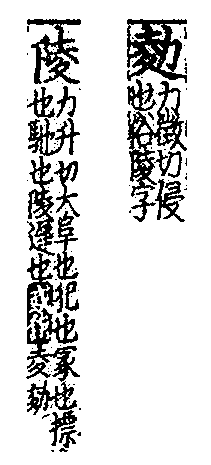 勑
力徵切侵
也俗陵字
陵
力升切大阜也犯也冢也摽
也馳也陵遲也夌勑